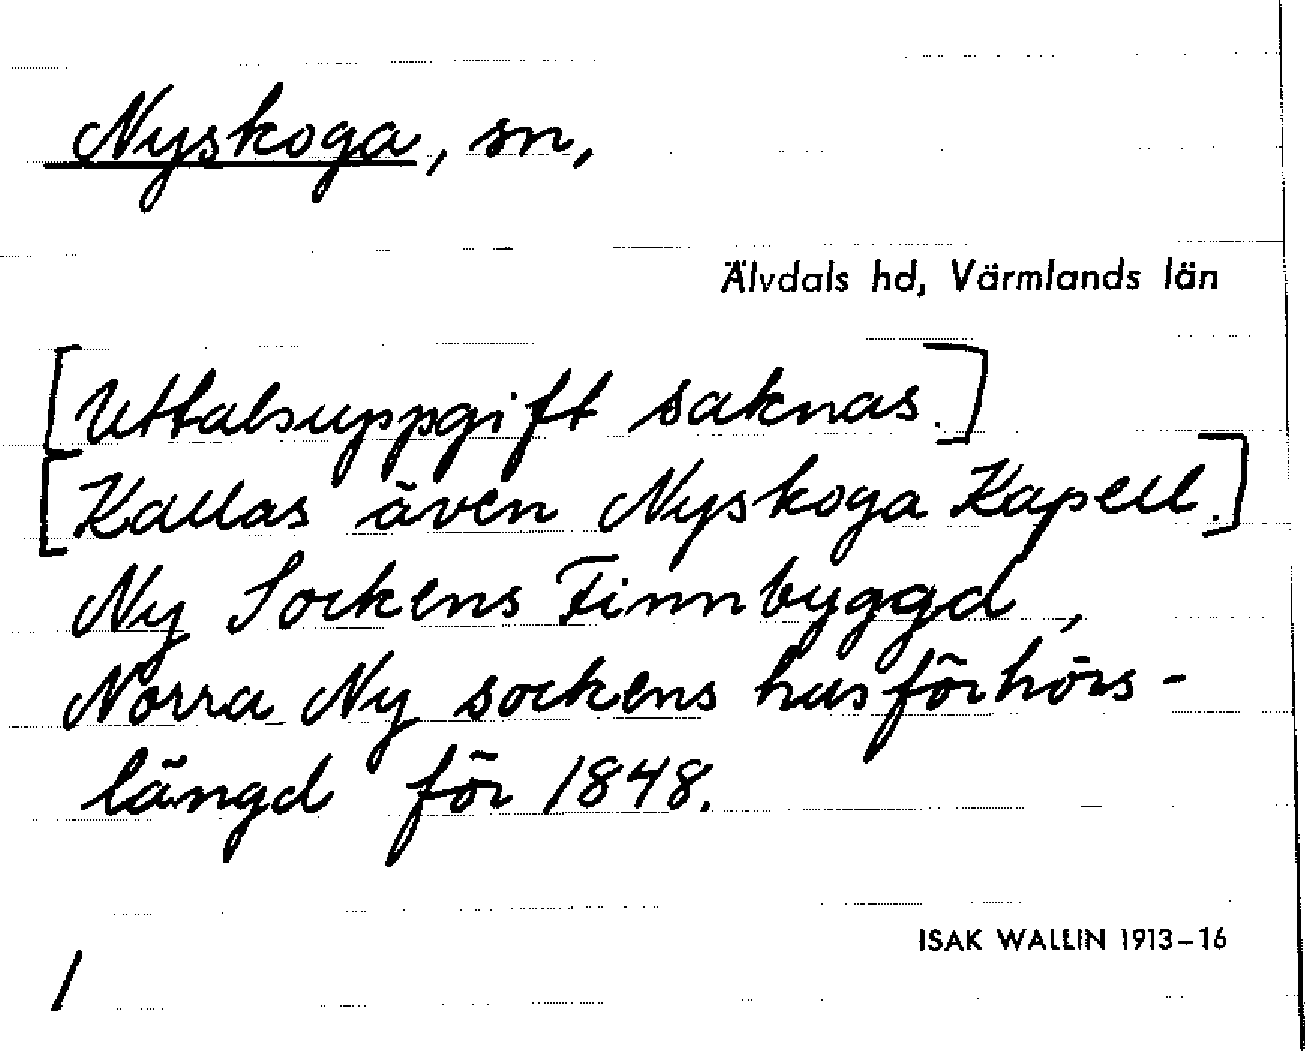 Nyskoga, sn,
Älvdals hd, Värmlands län
[Uttalsuppgift saknas.]
[Kallas även Nyskoga Kapell.]
Ny Sockens Finnbygd,
Norra Ny sockens husförhörs-
längd för 1848.
ISAK WALLIN 1913-16
/